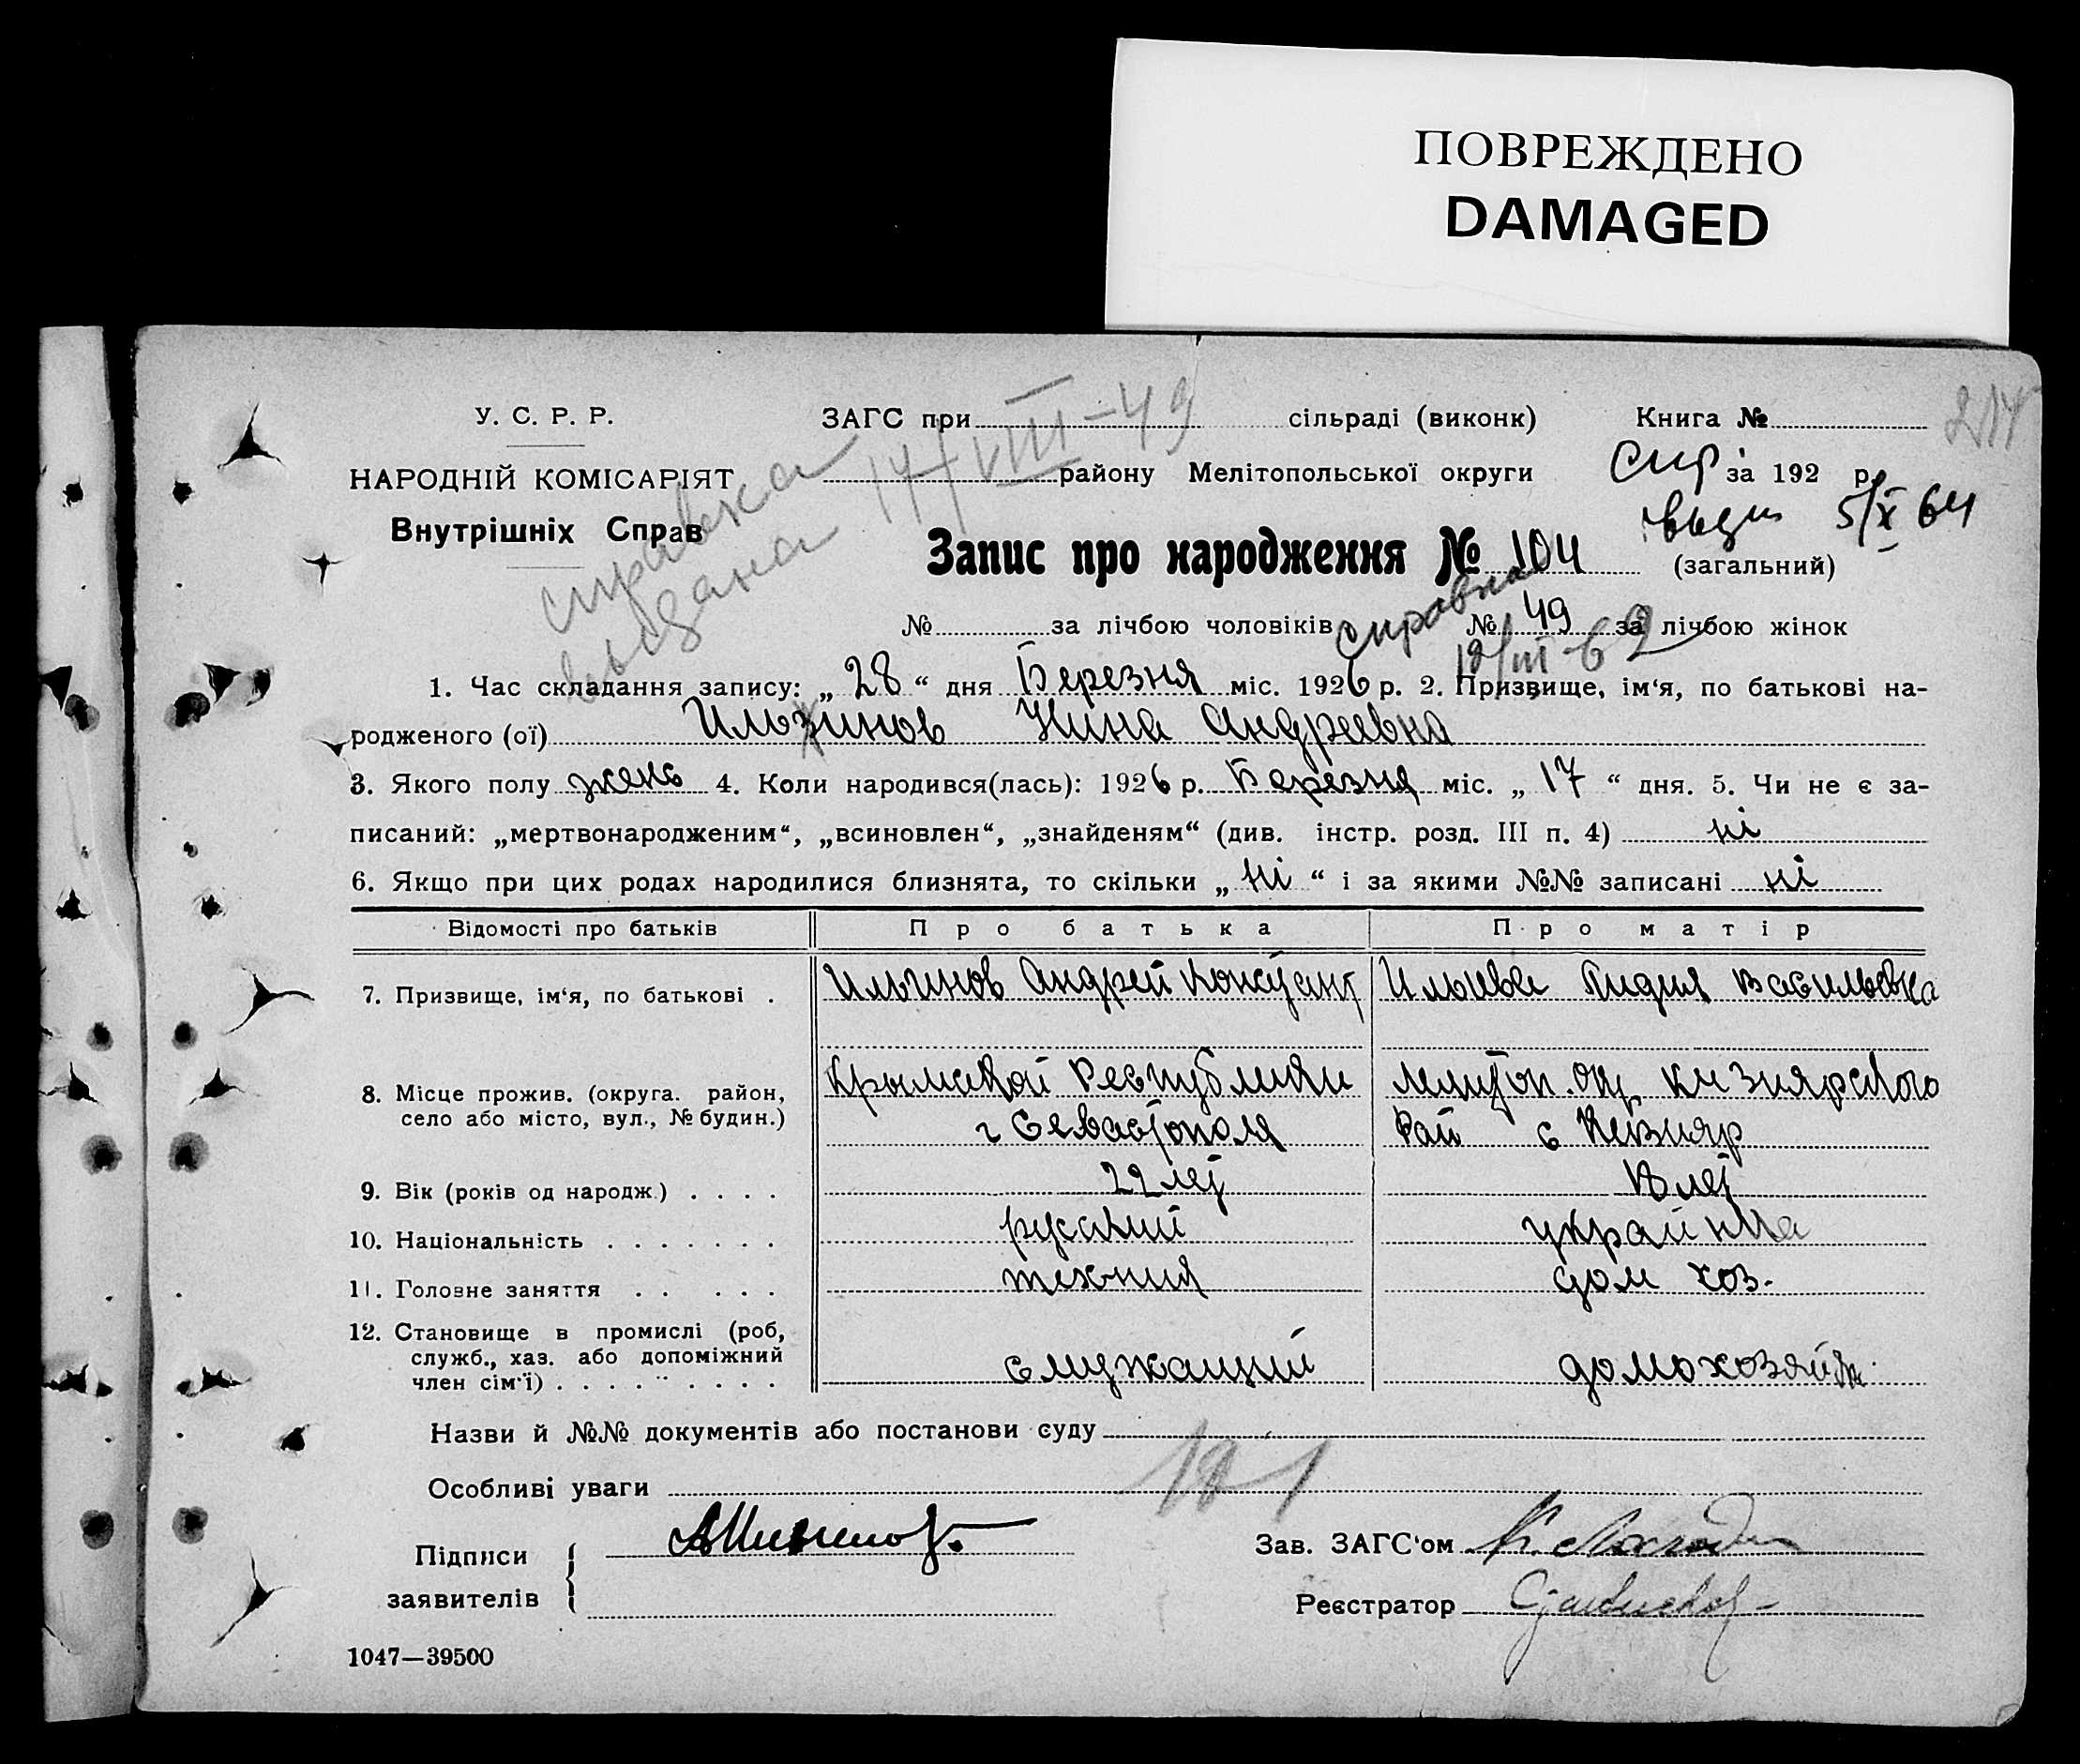 ПОВРЕЖДЕНО
DAMAGED
214
У. С. Р. Р.
ЗАГС при сільраді (виконк) Книга №
НАРОДНІЙ КОМІСАРІЯТ
району Мелітопольської округи за 192 р.
Внутрішніх Справ
справка
выдана 14/VIII-49
спр
выдн 5/X 64
Запис про народження № 104 (загальний)
№ за лічбою чоловіків № 49 за лічбою жінок
справка
1. Час складання запису: „ 28 “ дня Березня міс. 1926 р. 2. Призвище, ім‘я, по батькові на-
родженого (ої) Нина Андреевна
3. Якого полу жень 4. Коли народився(лась): 1926 р. Березня міс. „ 17 “ дня. 5. Чи не є за-
писаний: „мертвонародженим“, „всиновлен“, „знайденям“ (див. інстр. розд. III п. 4) ні
6. Якщо при цих родах народилися близнята, то скільки „ ні “ і за якими №№ записані ні
Відомості про батьків Про батька Про матір
7. Призвище, ім‘я, по батькові . Ильинов Андрей Васильевна
8. Місце прожив. (округа. район, Крымской Республики
село або місто, вул., № будин.) г Севастополя Рай с
9. Вік (років од народж.) . . . . 22 лет
10. Національність . . . . . . . русский украинка
11. Головне заняття . . . . . дом хоз.
12. Становище в промислі (роб,
служб., хаз. або допоміжний служащий
член сім‘ї) . . . . . . . . .
Назви й №№ документів або постанови суду
Особливі уваги
Підписи
заявителів
Зав. ЗАГС‘ом
Реєстратор
1047—39500